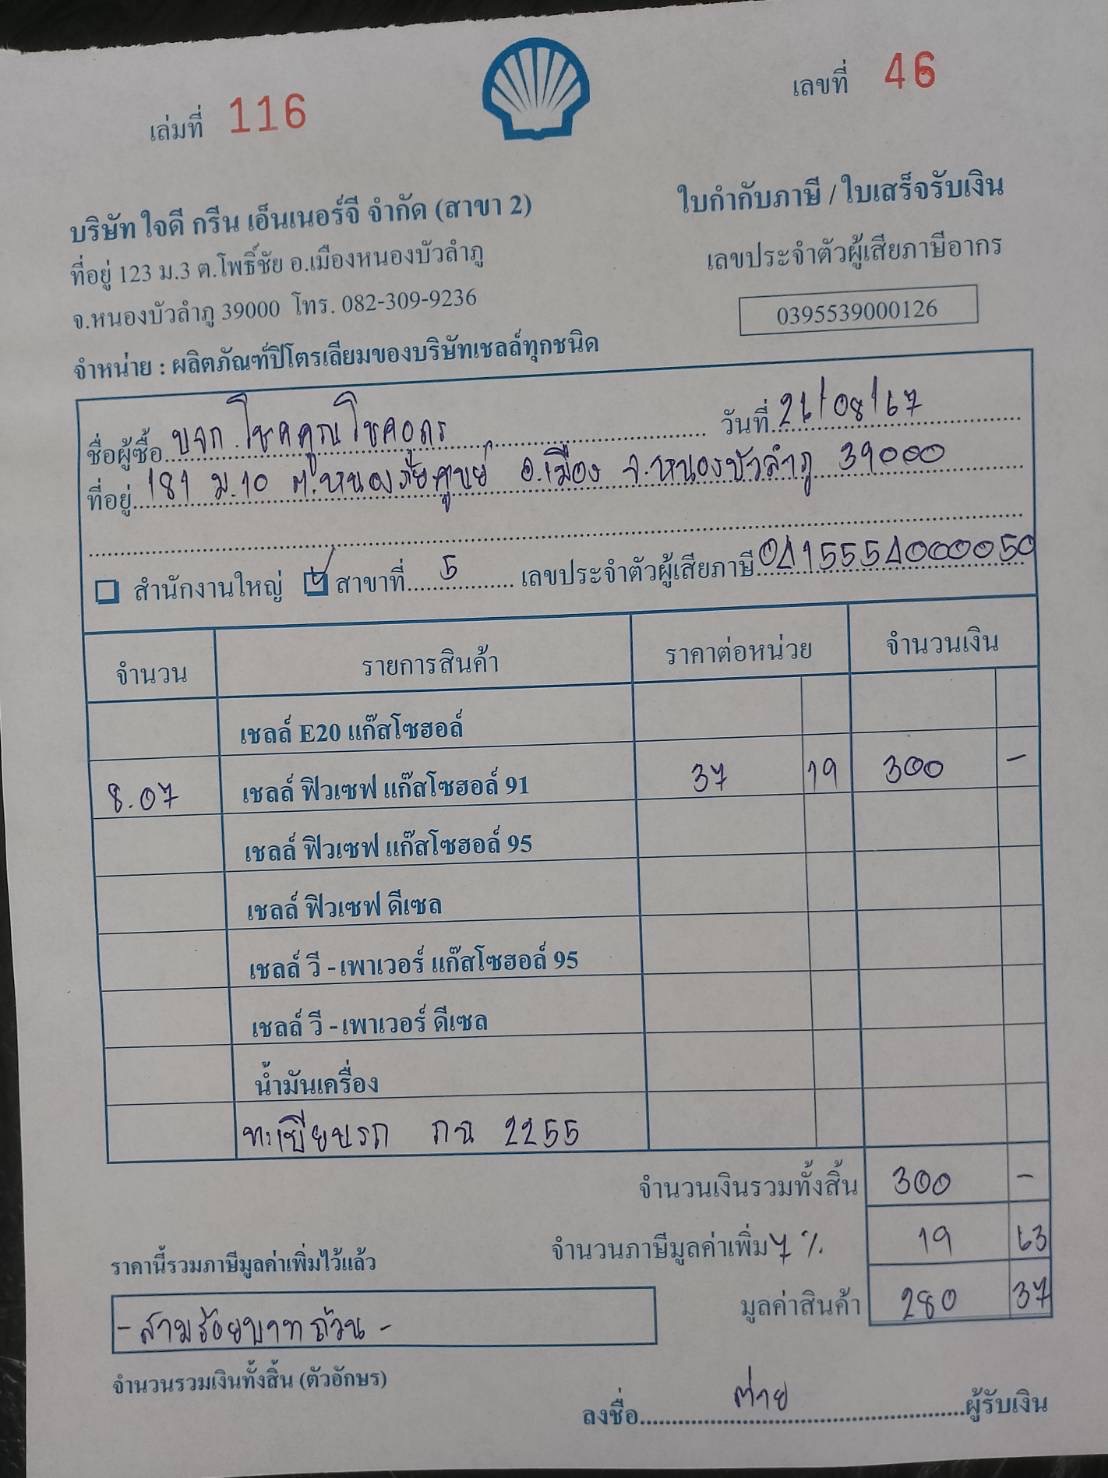 เล่มที่ 116
เลขที่ 46
บริษัท ใจดี กรีน เอ็นเนอร์จี จำกัด (สาขา 2)
ใบกำกับภาษี / ใบเสร็จรับเงิน
ที่อยู่ 123 ม.3 ต.โพธิ์ชัย อ.เมืองหนองบัวลำภู
เลขประจำตัวผู้เสียภาษีอากร
จ.หนองบัวลำภู 39000 โทร. 082-309-9236
0395539000126
จำหน่าย : ผลิตภัณฑ์ปิโตรเลียมของบริษัทเชลล์ทุกชนิด
ชื่อผู้ซื้อ บจก. โชคคูณโชคอุดร วันที่ 26/08/67
ที่อยู่ 181 ม.10 ต.หนองภัยศูนย์ อ.เมือง จ.หนองบัวลำภู 39000
สำนักงานใหญ่ สาขาที่ 5 เลขประจำตัวผู้เสียภาษี 0415554000050
จำนวน รายการสินค้า ราคาต่อหน่วย จำนวนเงิน
เชลล์ E20 แก๊สโซฮอล์
8.07 เชลล์ ฟิวเซฟ แก๊สโซฮอล์ 91 37 19 300 -
เชลล์ ฟิวเซฟ แก๊สโซฮอล์ 95
เชลล์ ฟิวเซฟ ดีเซล
เชลล์ วี - เพาเวอร์ แก๊สโซฮอล์ 95
เชลล์ วี - เพาเวอร์ ดีเซล
น้ำมันเครื่อง
ทะเบียนรถ กฉ 2255
จำนวนเงินรวมทั้งสิ้น 300 -
จำนวนภาษีมูลค่าเพิ่ม 7 % 19 63
ราคานี้รวมภาษีมูลค่าเพิ่มไว้แล้ว
มูลค่าสินค้า 280 37
- สามร้อยบาทถ้วน -
จำนวนรวมเงินทั้งสิ้น (ตัวอักษร)
ลงชื่อ ต่าย ผู้รับเงิน